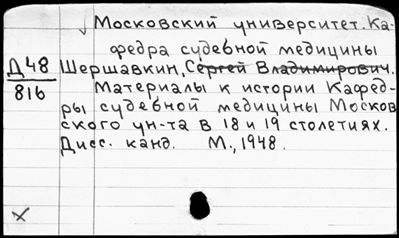 Московский университет. Ка-
федра судебной медицины
Д48 Шершавкин, Сергей Владимирович.
816 Материалы к истории Кафед-
ры судебной медицины Москов
ского ун-та в 18 и 19 столетиях.
Дисс. канд. М., 1948.